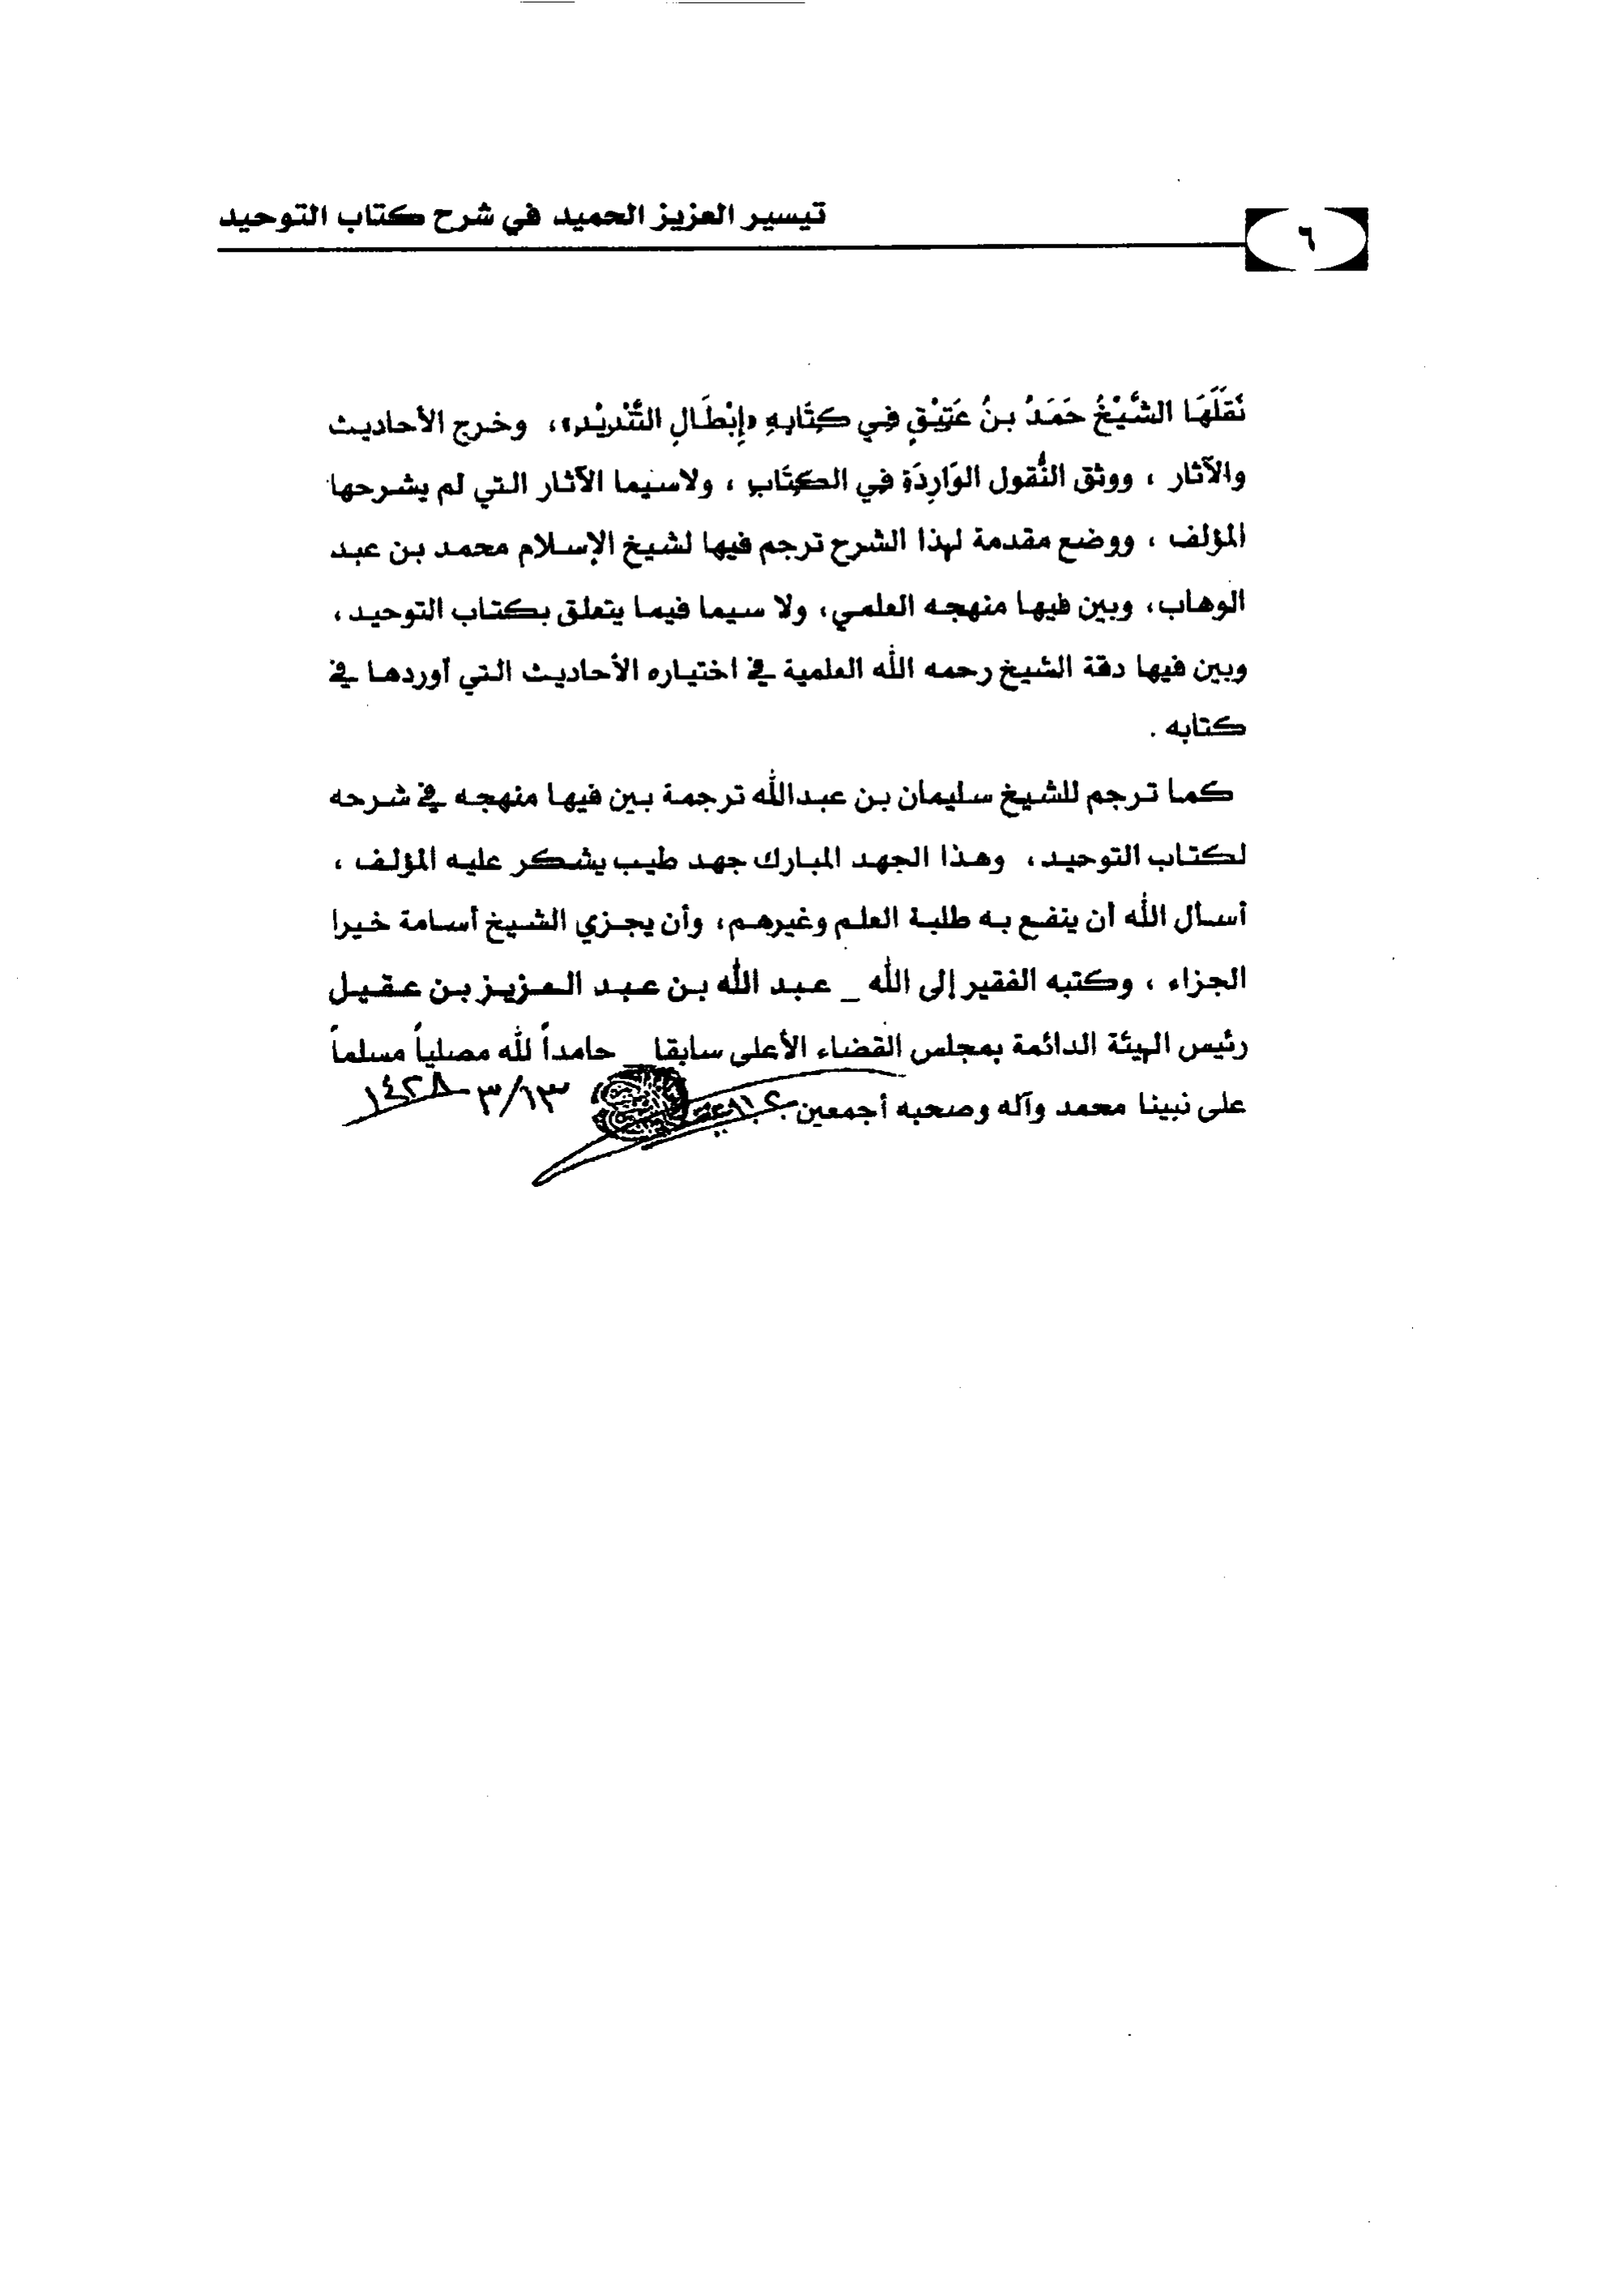 ٦
تيسير العزيز الحميد في شرح كتاب التوحيد
نَقَلَهَا الشَّيْخُ حَمَدُ بنُ عَتِيْقٍ فِي كِتَابِهِ «إِبْطَالِ التَّنْدِيْدِ»، وخرج الأحاديث
والآثار ، ووثق النُّقول الوَارِدَة فِي الكِتَابِ ، ولاسيما الآثار التي لم يشرحها
المؤلف ، ووضع مقدمة لهذا الشرح ترجم فيها لشيخ الإسلام محمد بن عبد
الوهاب، وبين فيها منهجه العلمي، ولا سيما فيما يتعلق بكتاب التوحيد،
وبين فيها دقة الشيخ رحمه الله العلمية في اختياره الأحاديث التي أوردها في
كتابه .
كما ترجم للشيخ سليمان بن عبدالله ترجمة بين فيها منهجه في شرحه
لكتاب التوحيد، وهذا الجهد المبارك جهد طيب يشكر عليه المؤلف ،
أسأل الله أن ينفع به طلبة العلم وغيرهم، وأن يجزي الشيخ أسامة خيرا
الجزاء ، وكتبه الفقير إلى الله _ عبد الله بن عبد العزيز بن عقيل
رئيس الهيئة الدائمة بمجلس القضاء الأعلى سابقا_ حامداً لله مصلياً مسلماً
على نبينا محمد وآله وصحبه أجمعين ١٣/٣-١٤٢٨